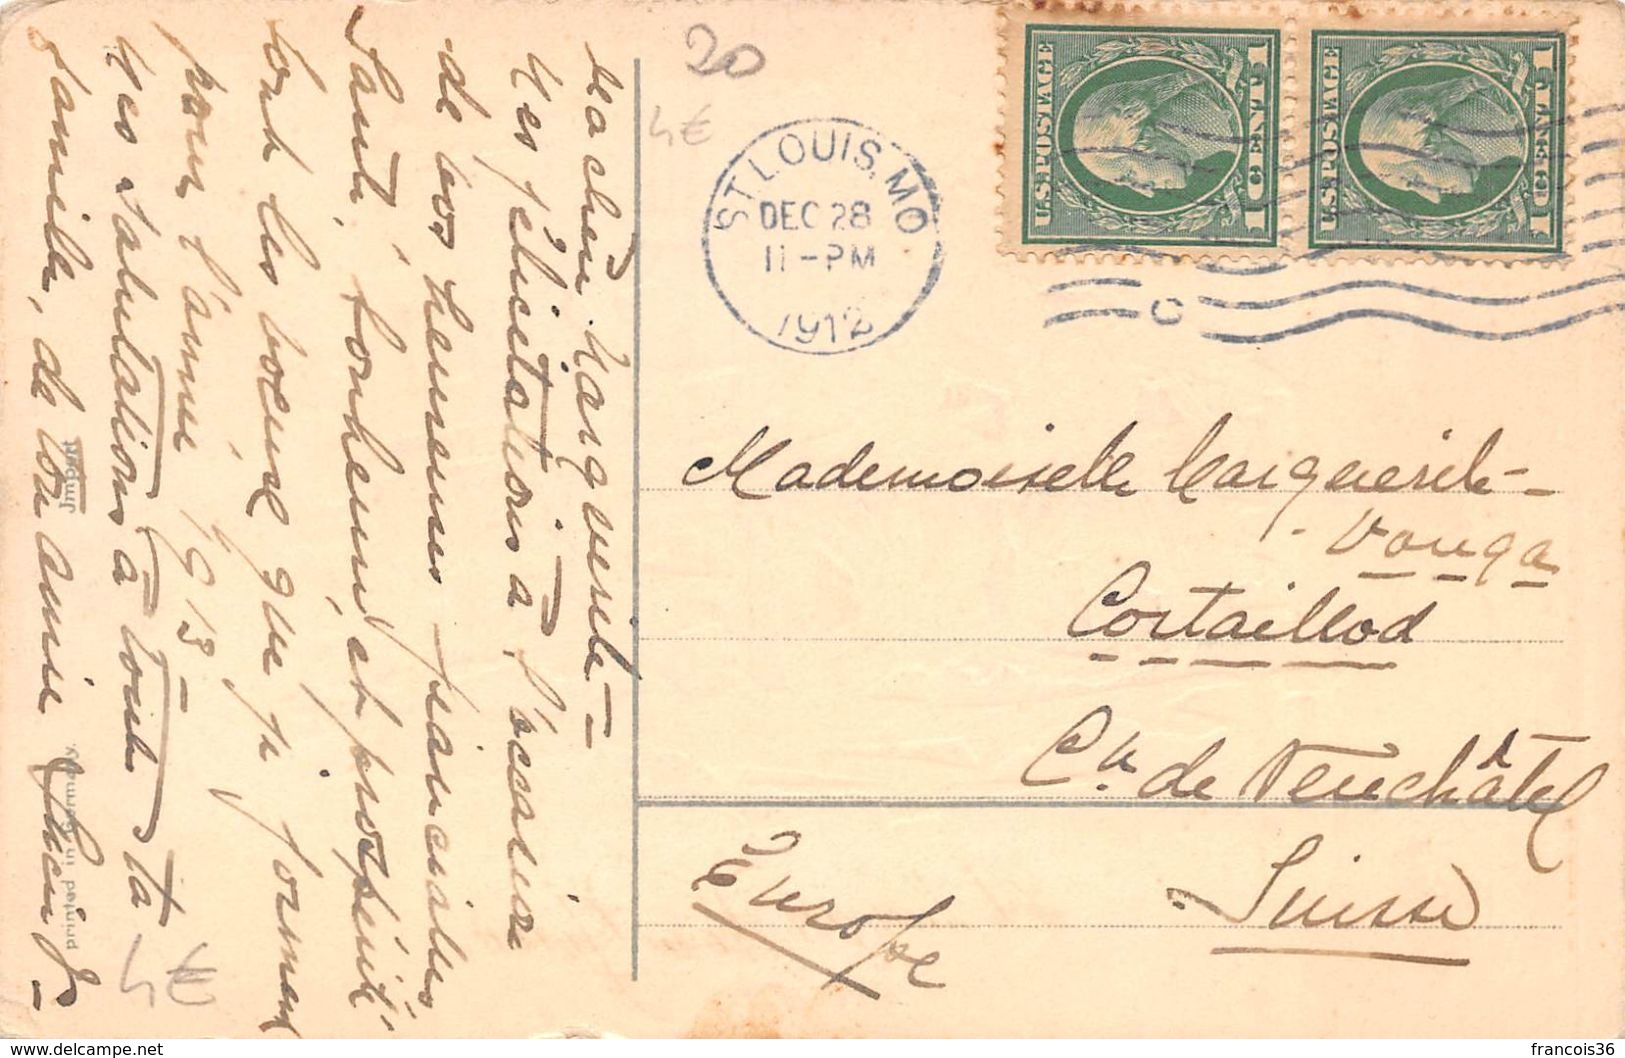 Ma chère Marguerite –
Mes félicitations à l'occasion
de vos heureuses fiançailles
Santé, bonheur, et prospérité
sont les voeux que je formens
pour l'année 1913 –
Mes salutations à toute ta
famille, de ton amie
Junior
Printed in Germany.
20
4€
4€
ST. LOUIS, MO
DEC 28
11-PM
1912
C
U.S. POSTAGE
1 CENT 1
U.S. POSTAGE
1 CENT 1
Mademoiselle Marguerite –
Vouga
Cortaillod
Cn de Neuchâtel
Suisse
Europe
delcampe.net
francois36